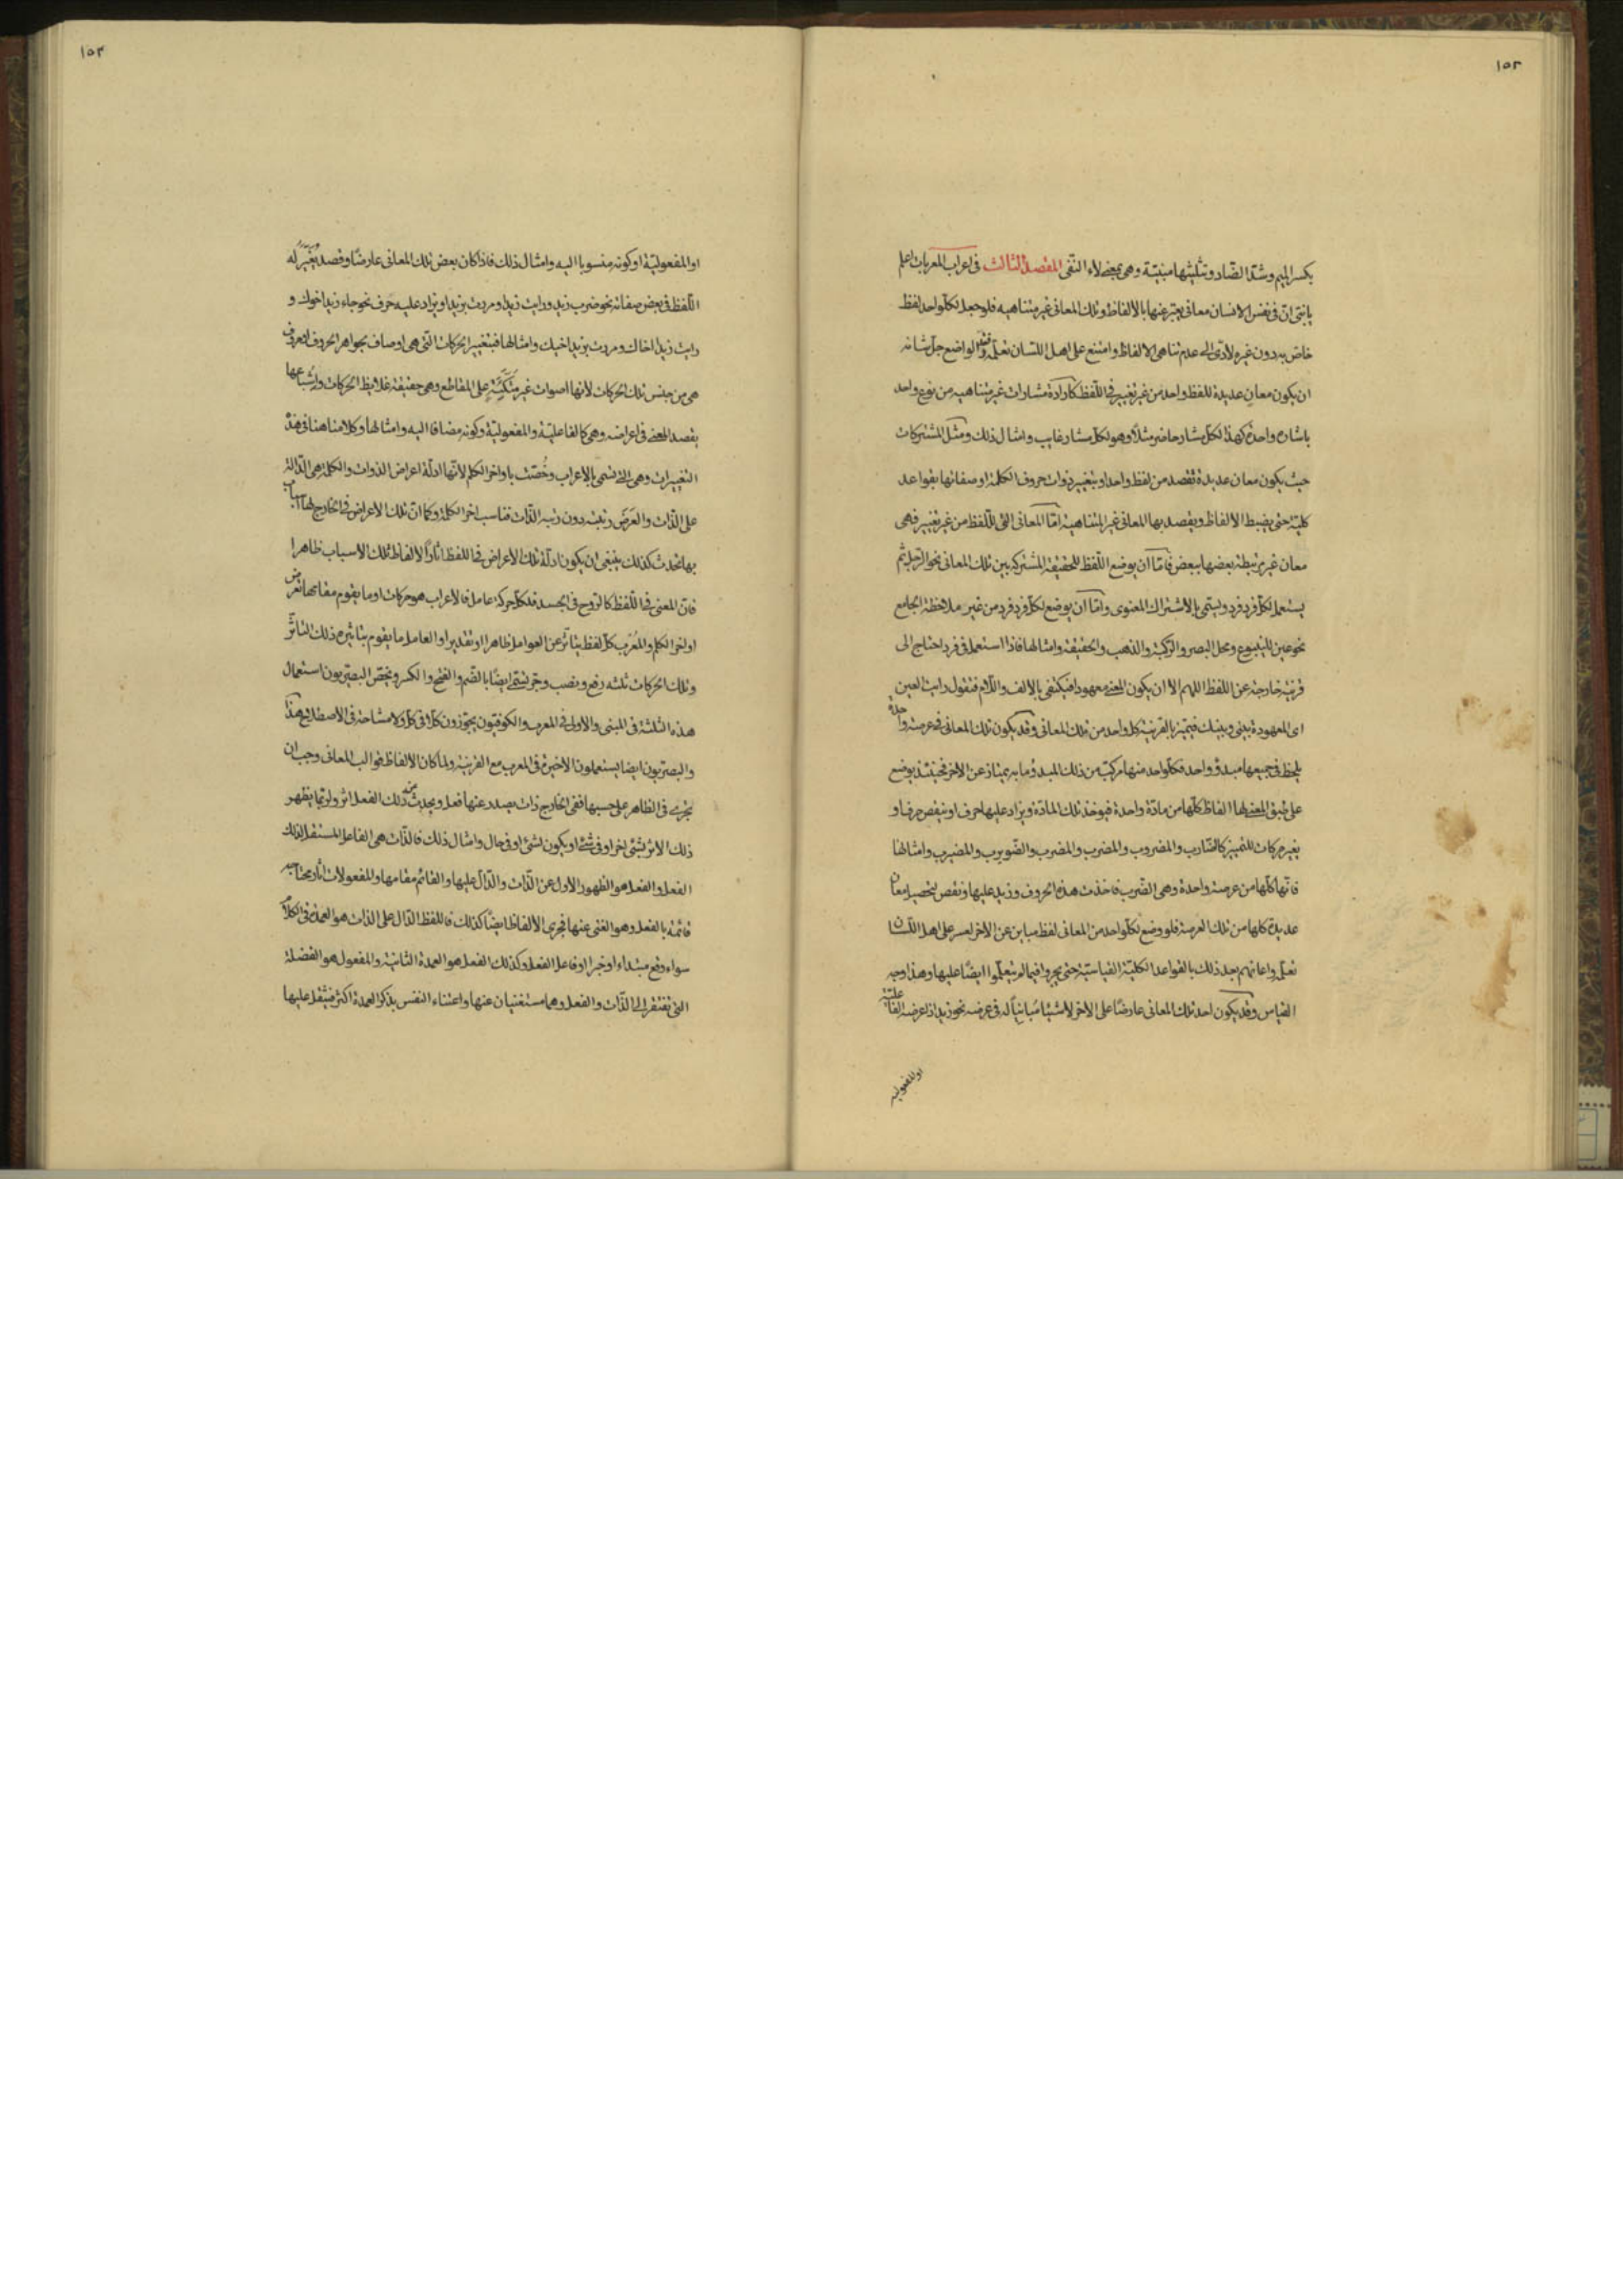 ١٥٢
بكسر الميم وشد الضاد وتثليثها مبنيّة وهى بمعنى لاء النفى المقصد الثالث فى اعراب المعربات اعلم
يا بنى انّ فى نفس الانسان معانى يعبّر عنها بالالفاظ وتلك المعانى غير متناهيه فلو جعل لكلّ واحد لفظ
خاص به دون غيره لادّى الى عدم تناهى الالفاظ وامتنع على اهل اللسان تعلّمه الواضع جلّ شانه
ان يكون معان عديدة للفظ واحد من غير تغيير فى اللّفظ كارادة مشارات غير متناهيه من نوع واحد
باشاره واحدة كهذا لكلّ مشار حاضر مثلاً وهو لكلّ مشار غايب وامثال ذلك ومثل المشتركات
حيث يكون معان عديدة تقصد من لفظ واحد او بتغيير ذوات حروف الكلمة او صفاتها بقواعد
كليّة حتى يضبط الالفاظ ويقصد بها المعانى غير المتناهية امّا المعانى التى للّفظ من غير تغيير فهى
معان غير مرتبطة بعضها ببعض فامّا ان يوضع اللّفظ للحقيقة المشتركة بين تلك المعانى نحو الرّجل ثم
يستعمل لكلّ فرد فرد ويسمّى بالاشتراك المعنوى وامّا ان يوضع لكلّ فرد فرد من غير ملاحظة الجامع
نحو عين للينبوع ومحل البصر والركبة والذهب والحقيقة وامثالها فاذا استعمل فى فرد احتاج الى
قرينة خارجة عن اللفظ اللهم الا ان يكون المعنى معهودا فيكتفى بالالف واللّام فتقول رايت العين
اى المعهودة بينى وبينك فيتميّز بالقرينة كل واحد من تلك المعانى وقد يكون تلك المعانى فى عرصة واحدة
يلحظ فى جميعها مبدؤ واحد فكلّ واحد منها مركّب من ذلك المبدؤ وما به يمتاز عن الاخر فحينئذ يوضع
على طبق المعنى لها الفاظ كلّها من مادّة واحدة فيوخذ تلك المادّة ويزاد عليها حرف او ينقص حرف او
يغير حركات للتمييز كالضّارب والمضروب والمضرب والمضرب والضّويرب والمضيرب وامثالها
فانّها كلّها من عرصة واحدة وهى الضّرب فاخذت هذه الحروف وزيد عليها ونقص لتحصيل معان
عديدة كلها من تلك العرصة فلو وضع لكلّ واحد من المعانى لفظ مباين عن الاخر لعسر على اهل اللّسان
تعلّمه واعانهم بعد ذلك بالقواعد الكليّة القياسيّة حتى يجروا فيما لم يتعلّموا ايضًا عليها وهذا وجه
القياس وقد يكون احد تلك المعانى عارضًا على الاخر لا شيئا مباينًا له فى عرضه نحو زيد اذا عرضه الفاعليّة
او المفعولية
١٥٣
او المفعوليّة او كونه منسوبا اليه وامثال ذلك فاذا كان بعض تلك المعانى عارضًا وقصد يُغيّر له
اللّفظ فى بعض صفاته نحو ضرب زيد ورايت زيدا ومررت بزيد او يزاد عليه حرف نحو جاء زيد اخوك و
رايت زيدا اخاك ومررت بزيد اخيك وامثالها فبتغيير الحركات التى هى اوصاف بجواهر الحروف او حروف
هى من جنس تلك الحركات لانها اصوات غير متكئة على المقاطع وهى حقيقة غلايظ الحركات واشباعها
يقصد المعنى فى اعراضه وهى كالفاعليّة والمفعوليّة وكونه مضافا اليه وامثالها وكلامنا هنا فى هذه
التغييرات وهى التى تسمى بالاعراب وخُصّت باواخر الكلم لانّها ادلّة اعراض الذوات والكلمة هى الدّالة
على الذّات والعَرَض رتبته دون رتبه الذّات تناسب اخر الكلمة وكما انّ تلك الاعراض فى الخارج لها اسباب
بها تحدث كذلك ينبغى ان يكون ادلة تلك الاعراض فى اللفظ اثارًا لالفاظ تلك الاسباب ظاهرا
فانّ المعنى فى اللّفظ كالرّوح فى الجسد فلكلّ حركة عامل فالاعراب هو حركات او ما يقوم مقامها تعرض
اواخر الكلم والمُعرَب كلّ لفظ يتاثّر عن العوامل ظاهرا او تقديرا والعامل ما يقوم بتاثيره ذلك التاثّر
وتلك الحركات ثلثه رفع ونصب وجرّ تسمّى ايضًا بالضّم والفتح والكسر ويخصّ البصريّون استعمال
هذه الثلثة فى المبنى والاول فى المعرب والكوفيّون يجوّزون كلّا فى كلّ ولا مشاحة فى الاصطلاح هذا
والبصريّون ايضا يستعملون الاخيرة فى المعرب مع القرينة ولمّا كان الالفاظ قوالب المعانى وجب ان
يجرى فى الظاهر على حسبها ففى الخارج ذات يصدر عنها فعل ويحدث من ذلك الفعل اثر ولربّما يظهر
ذلك الاثر بشئ اخر او فى شئ او يكون لشئ او فى حال وامثال ذلك فالذّات هى الفاعل المستقل لذلك
الفعل والفعل هو الظهور الاول عن الذّات والدّال عليها والقائم مقامها والمفعولات اثار محتاجه
قائمة بالفعل وهو الغنى عنها فجرى الالفاظ ايضًا كذلك فاللفظ الدّال على الذات هو العمدة فى الكلام
سواء وقع مبتداء او خبرا او فاعل الفعل وكذلك الفعل هو العمدة الثانية والمفعول هو الفضلة
التى تفتقر الى الذّات والفعل وهما مستغنيان عنها واعتناء النفس بذكر العمدة اكثر فيثقل عليها